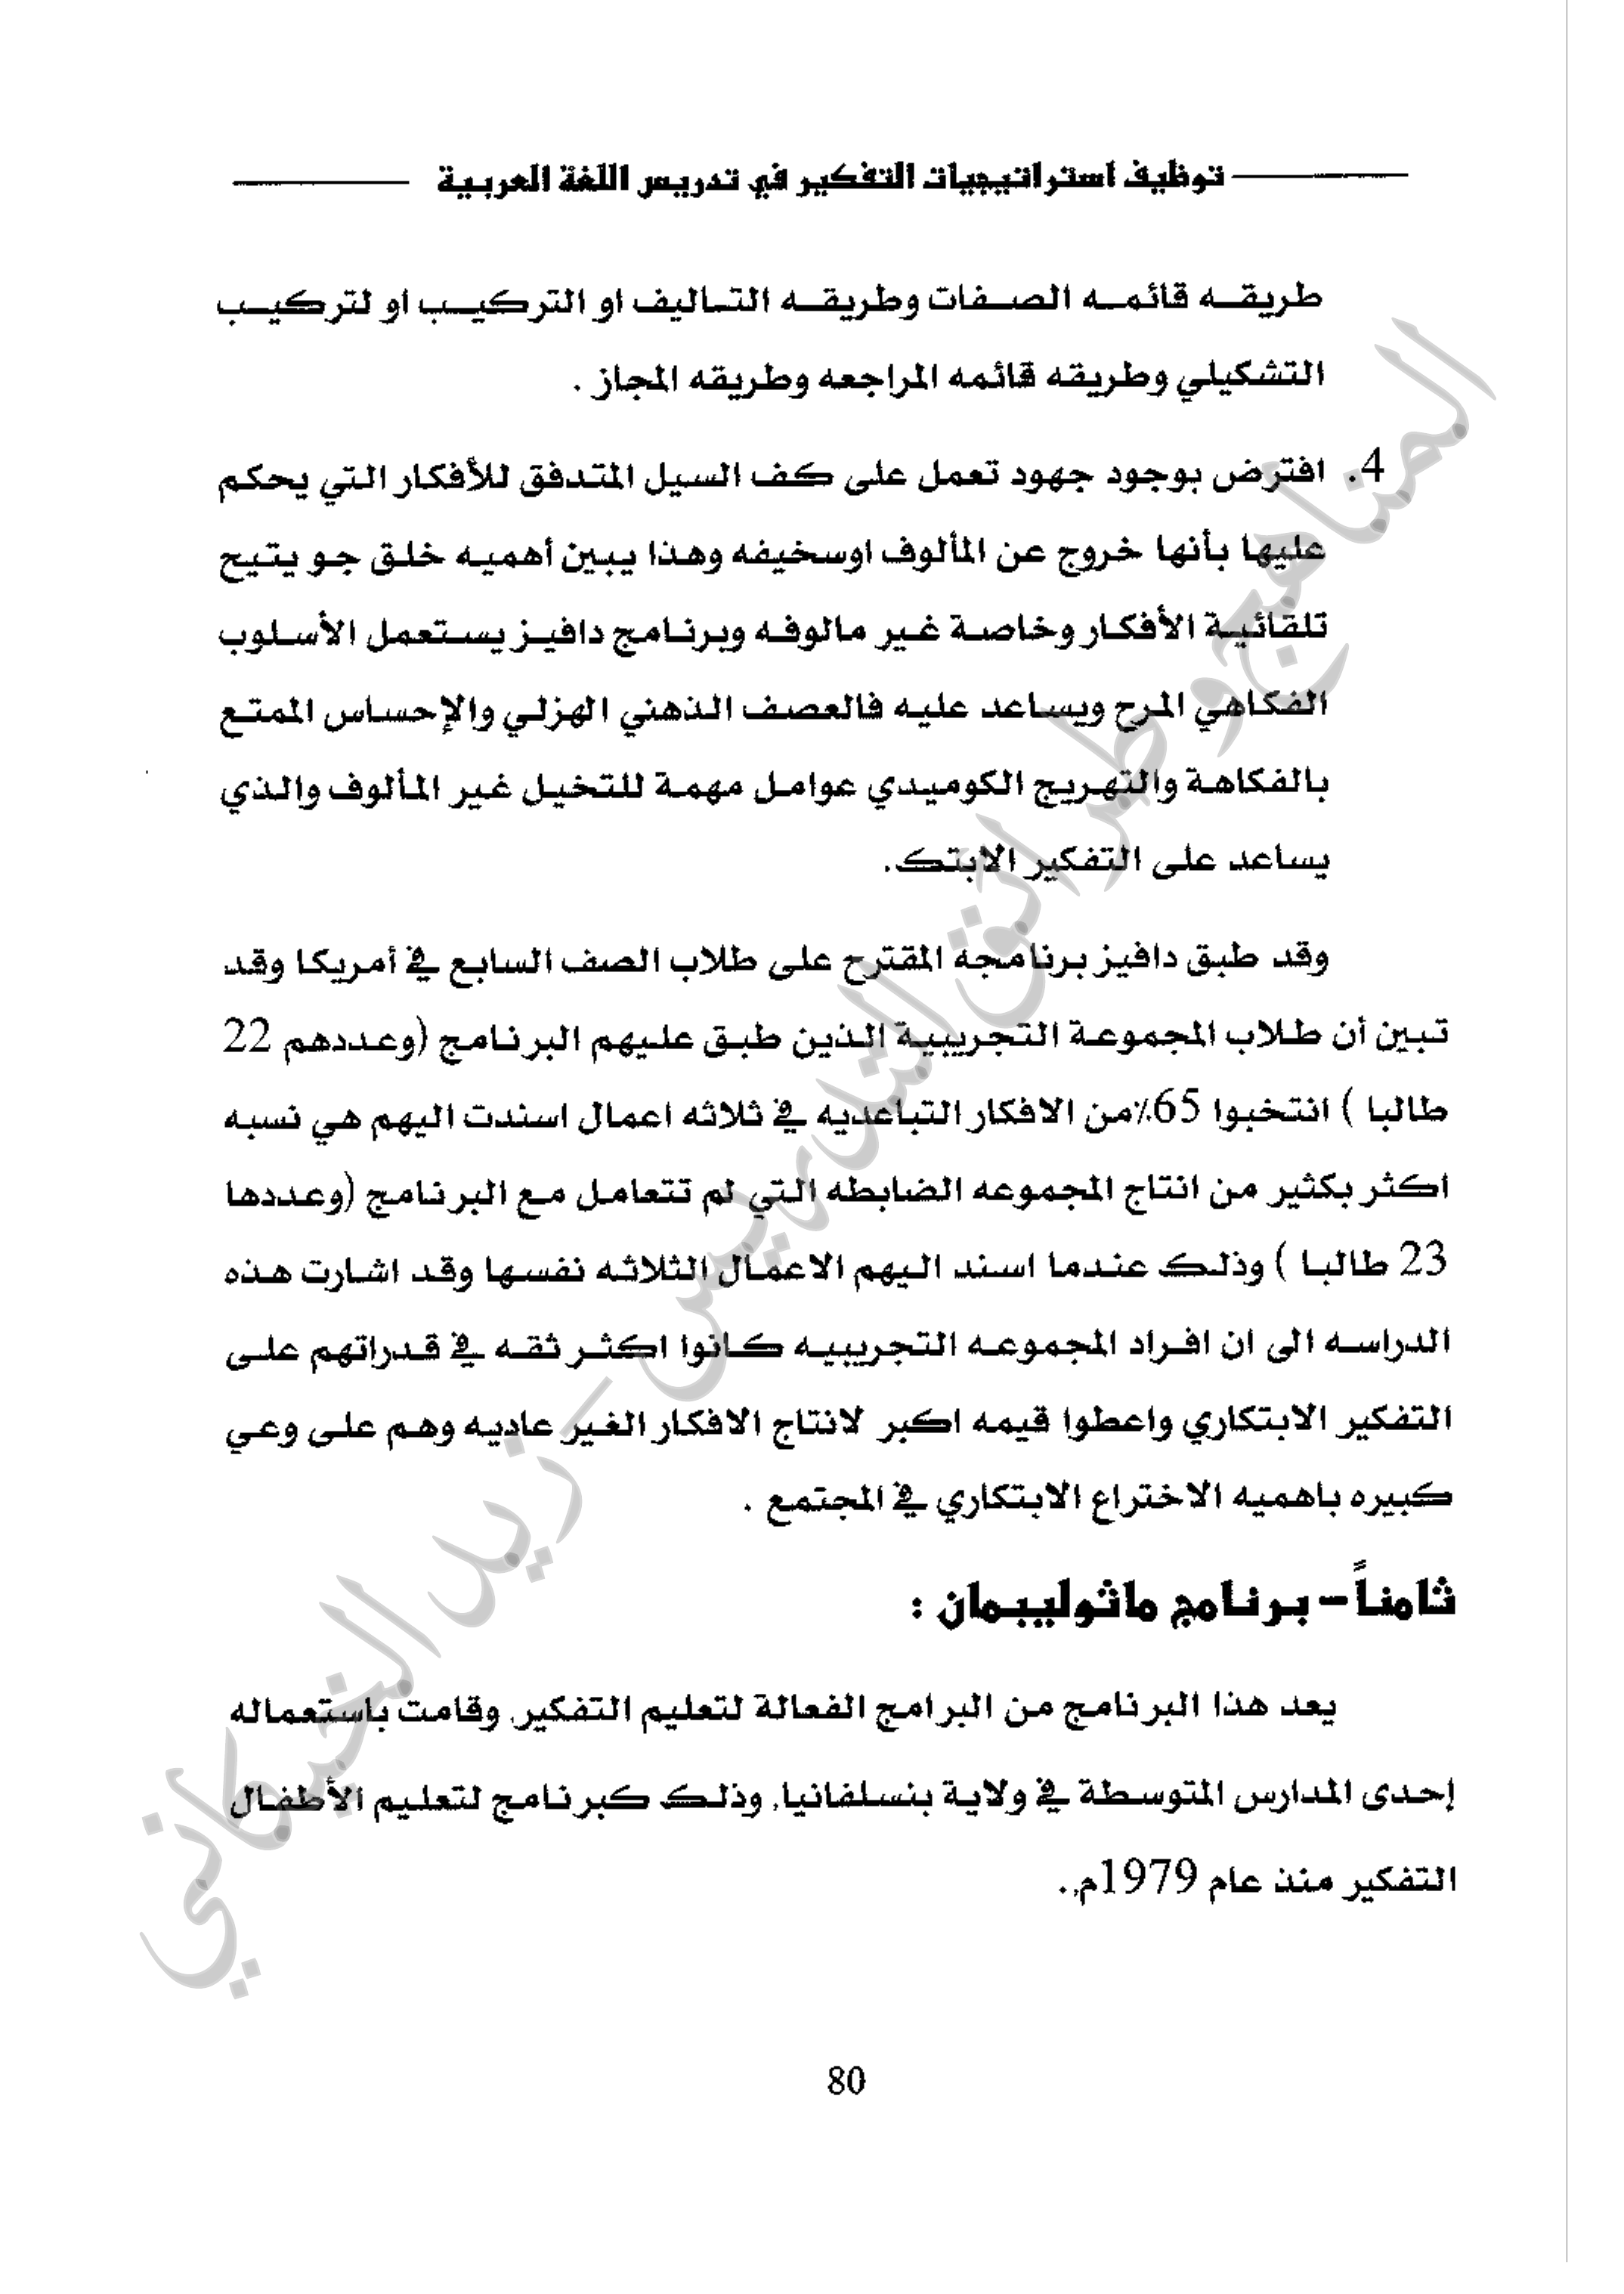 توظيف استراتيجيات التفكير في تدريس اللغة العربية
طريقه قائمه الصفات وطريقه التاليف او التركيب او لتركيب
التشكيلي وطريقه قائمه المراجعه وطريقه المجاز .
4. افترض بوجود جهود تعمل على كف السيل المتدفق للأفكار التي يحكم
عليها بأنها خروج عن المألوف اوسخيفه وهذا يبين أهميه خلق جو يتيح
تلقائية الأفكار وخاصة غير مالوفه وبرنامج دافيز يستعمل الأسلوب
الفكاهي المرح ويساعد عليه فالعصف الذهني الهزلي والإحساس الممتع
بالفكاهة والتهريج الكوميدي عوامل مهمة للتخيل غير المألوف والذي
يساعد على التفكير الابتك.
وقد طبق دافيز برنامجه المقترح على طلاب الصف السابع في أمريكا وقد
تبين أن طلاب المجموعة التجريبية الذين طبق عليهم البرنامج (وعددهم 22
طالبا ) انتخبوا 65٪من الافكار التباعديه في ثلاثه اعمال اسندت اليهم هي نسبه
اكثر بكثير من انتاج المجموعه الضابطه التي لم تتعامل مع البرنامج (وعددها
23 طالبا ) وذلك عندما اسند اليهم الاعمال الثلاثه نفسها وقد اشارت هذه
الدراسه الى ان افراد المجموعه التجريبيه كانوا اكثر ثقه في قدراتهم على
التفكير الابتكاري واعطوا قيمه اكبر لانتاج الافكار الغير عاديه وهم على وعي
كبيره باهميه الاختراع الابتكاري في المجتمع .
ثامناً – برنامج ماثوليبمان :
يعد هذا البرنامج من البرامج الفعالة لتعليم التفكير، وقامت باستعماله
إحدى المدارس المتوسطة في ولاية بنسلفانيا، وذلك كبرنامج لتعليم الأطفال
التفكير منذ عام 1979م.
80
المناهج وطرائق التدريس – زيد الخيكاني